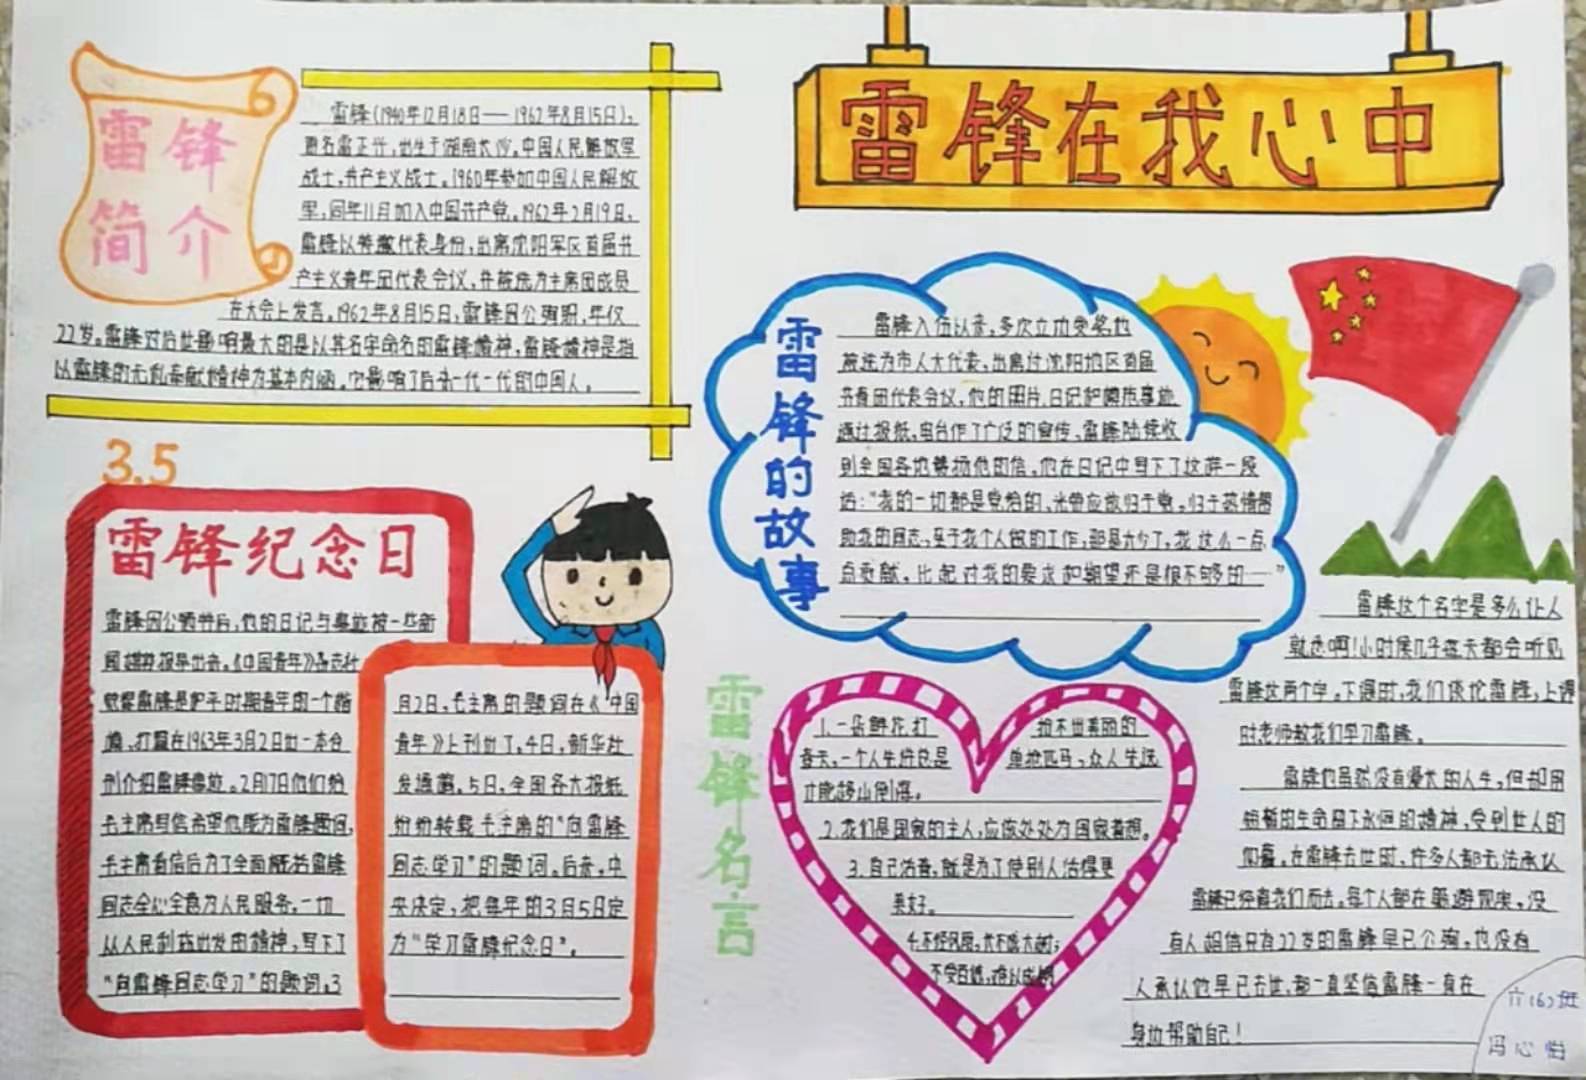 雷锋在我心中
雷锋
简介
雷锋(1940年12月18日——1962年8月15日),
原名雷正兴,出生于湖南长沙,中国人民解放军
战士,共产主义战士。1960年参加中国人民解放
军,同年11月加入中国共产党。1962年2月19日,
雷锋以特邀代表身份,出席沈阳军区首届共
产主义青年团代表会议,并被选为主席团成员
在大会上发言。1962年8月15日,雷锋因公殉职,年仅
22岁。雷锋对后世影响最大的是以其名字命名的雷锋精神,雷锋精神是指
以雷锋的无私奉献精神为基本内涵。它影响了后来一代一代的中国人。
3.5
雷锋纪念日
雷锋因公牺牲后,他的日记与事迹被一些新
闻媒报导出来。《中国青年》杂志社
雷锋是和平时期青年的一个
打算在1963年3月2日出一本合
刊介绍雷锋事迹。2月17日他们给
毛主席写信希望他能为雷锋题词,
毛主席看信后为了全面概括雷锋
同志全心全意为人民服务,一切
从人民利益出发的精神,写下了
“向雷锋同志学习”的题词。3
月2日,毛主席的题词在《中国
青年》上刊出了。4日,新华社
发通稿。5日,全国各大报纸
纷纷转载毛主席的“向雷锋
同志学习”的题词。后来,中
央决定,把每年的3月5日定
为“学习雷锋纪念日”。
雷锋的故事
雷锋入伍以来,多次立功受奖,他
被选为市人大代表,出席过沈阳地区首届
共青团代表会议,他的照片、日记和模范事迹
通过报纸,电台作了广泛的宣传,雷锋陆续收
到全国各地赞扬他的信。他在日记中写下了这样一段
话:“我的一切都是党给的,光荣应该归于党。归于热情帮
助我的同志,至于我个人做的工作,那是太少了,我这么一点
点贡献,比起对我的要求和期望还是很不够的——”
雷锋名言
1.一朵鲜花打扮不出美丽的
春天,一个人先进总是单枪匹马,众人先进
才能移山倒海。
2.我们是国家的主人,应该处处为国家着想。
3.自己活着,就是为了使别人活得更
美好。
4.不经风雨,长不成大树;
不受百炼,难以成钢
雷锋这个名字是多么让人
就悉啊!小时候几乎每天都会听见
雷锋这两个字。下课时,我们谈论雷锋,上课
时老师教我们学习雷锋。
雷锋他虽然没有漫长的人生,但却用
短暂的生命留下永恒的精神,受到世人的
仰慕。在雷锋去世时,许多人都无法承认
雷锋已经离我们而去。每个人都在躲避现实,没
有人相信只有22岁的雷锋早已公殉,也没有
人承认他早已去世,都一直坚信雷锋一直在
身边帮助自己!
六(6)班
冯心怡